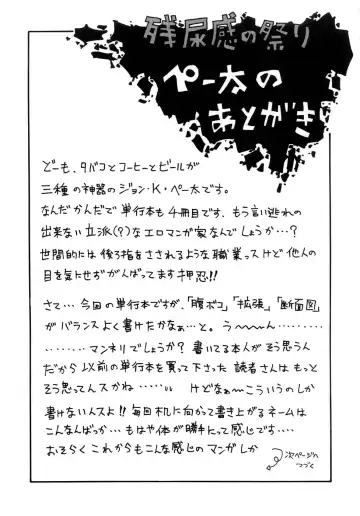 残尿感の祭り
ペー太の
あとがき
どーも、タバコとコーヒーとビールが
三種の神器のジョン・K・ペー太です。
なんだかんだで単行本も4冊目です、もう言い逃れの
出来ない立派(?)なエロマンガ家なんでしょうか…?
世間的には後ろ指をさされるような職業っスけど他人の
目を気にせずがんばってます押忍!!
さて…今回の単行本ですが、「腹ボコ」「拡張」「断面図」
がバランスよく書けたかなぁ…と。う〜〜〜ん………
………マンネリでしょうか?書いてる本人がそう思うん
だから以前の単行本を買って下さった読者さんはもっと
そう思ってんスかね……… けどなぁ〜こういうのしか
書けない人スよ!!毎回机に向かって書き上がるネームは
こんなんばっか…もはや体が勝手にって感じです…
おそらくこれからもこんな感じのマンガしか
次ページへ
つづく